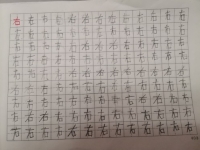 右右右右右右右右右右右右右
右右右右右右右右右右右右右
右右右右右右右右右右右右右
右右右右右右右右右右右右右
右右右右右右右右右右右右右
右右右右右右右右右右右右右
右右右右右右右右右右右右右
右右右右右右右右右右右右右
右右右右右右右右右右右右右
右右右右右右右右右右右右右